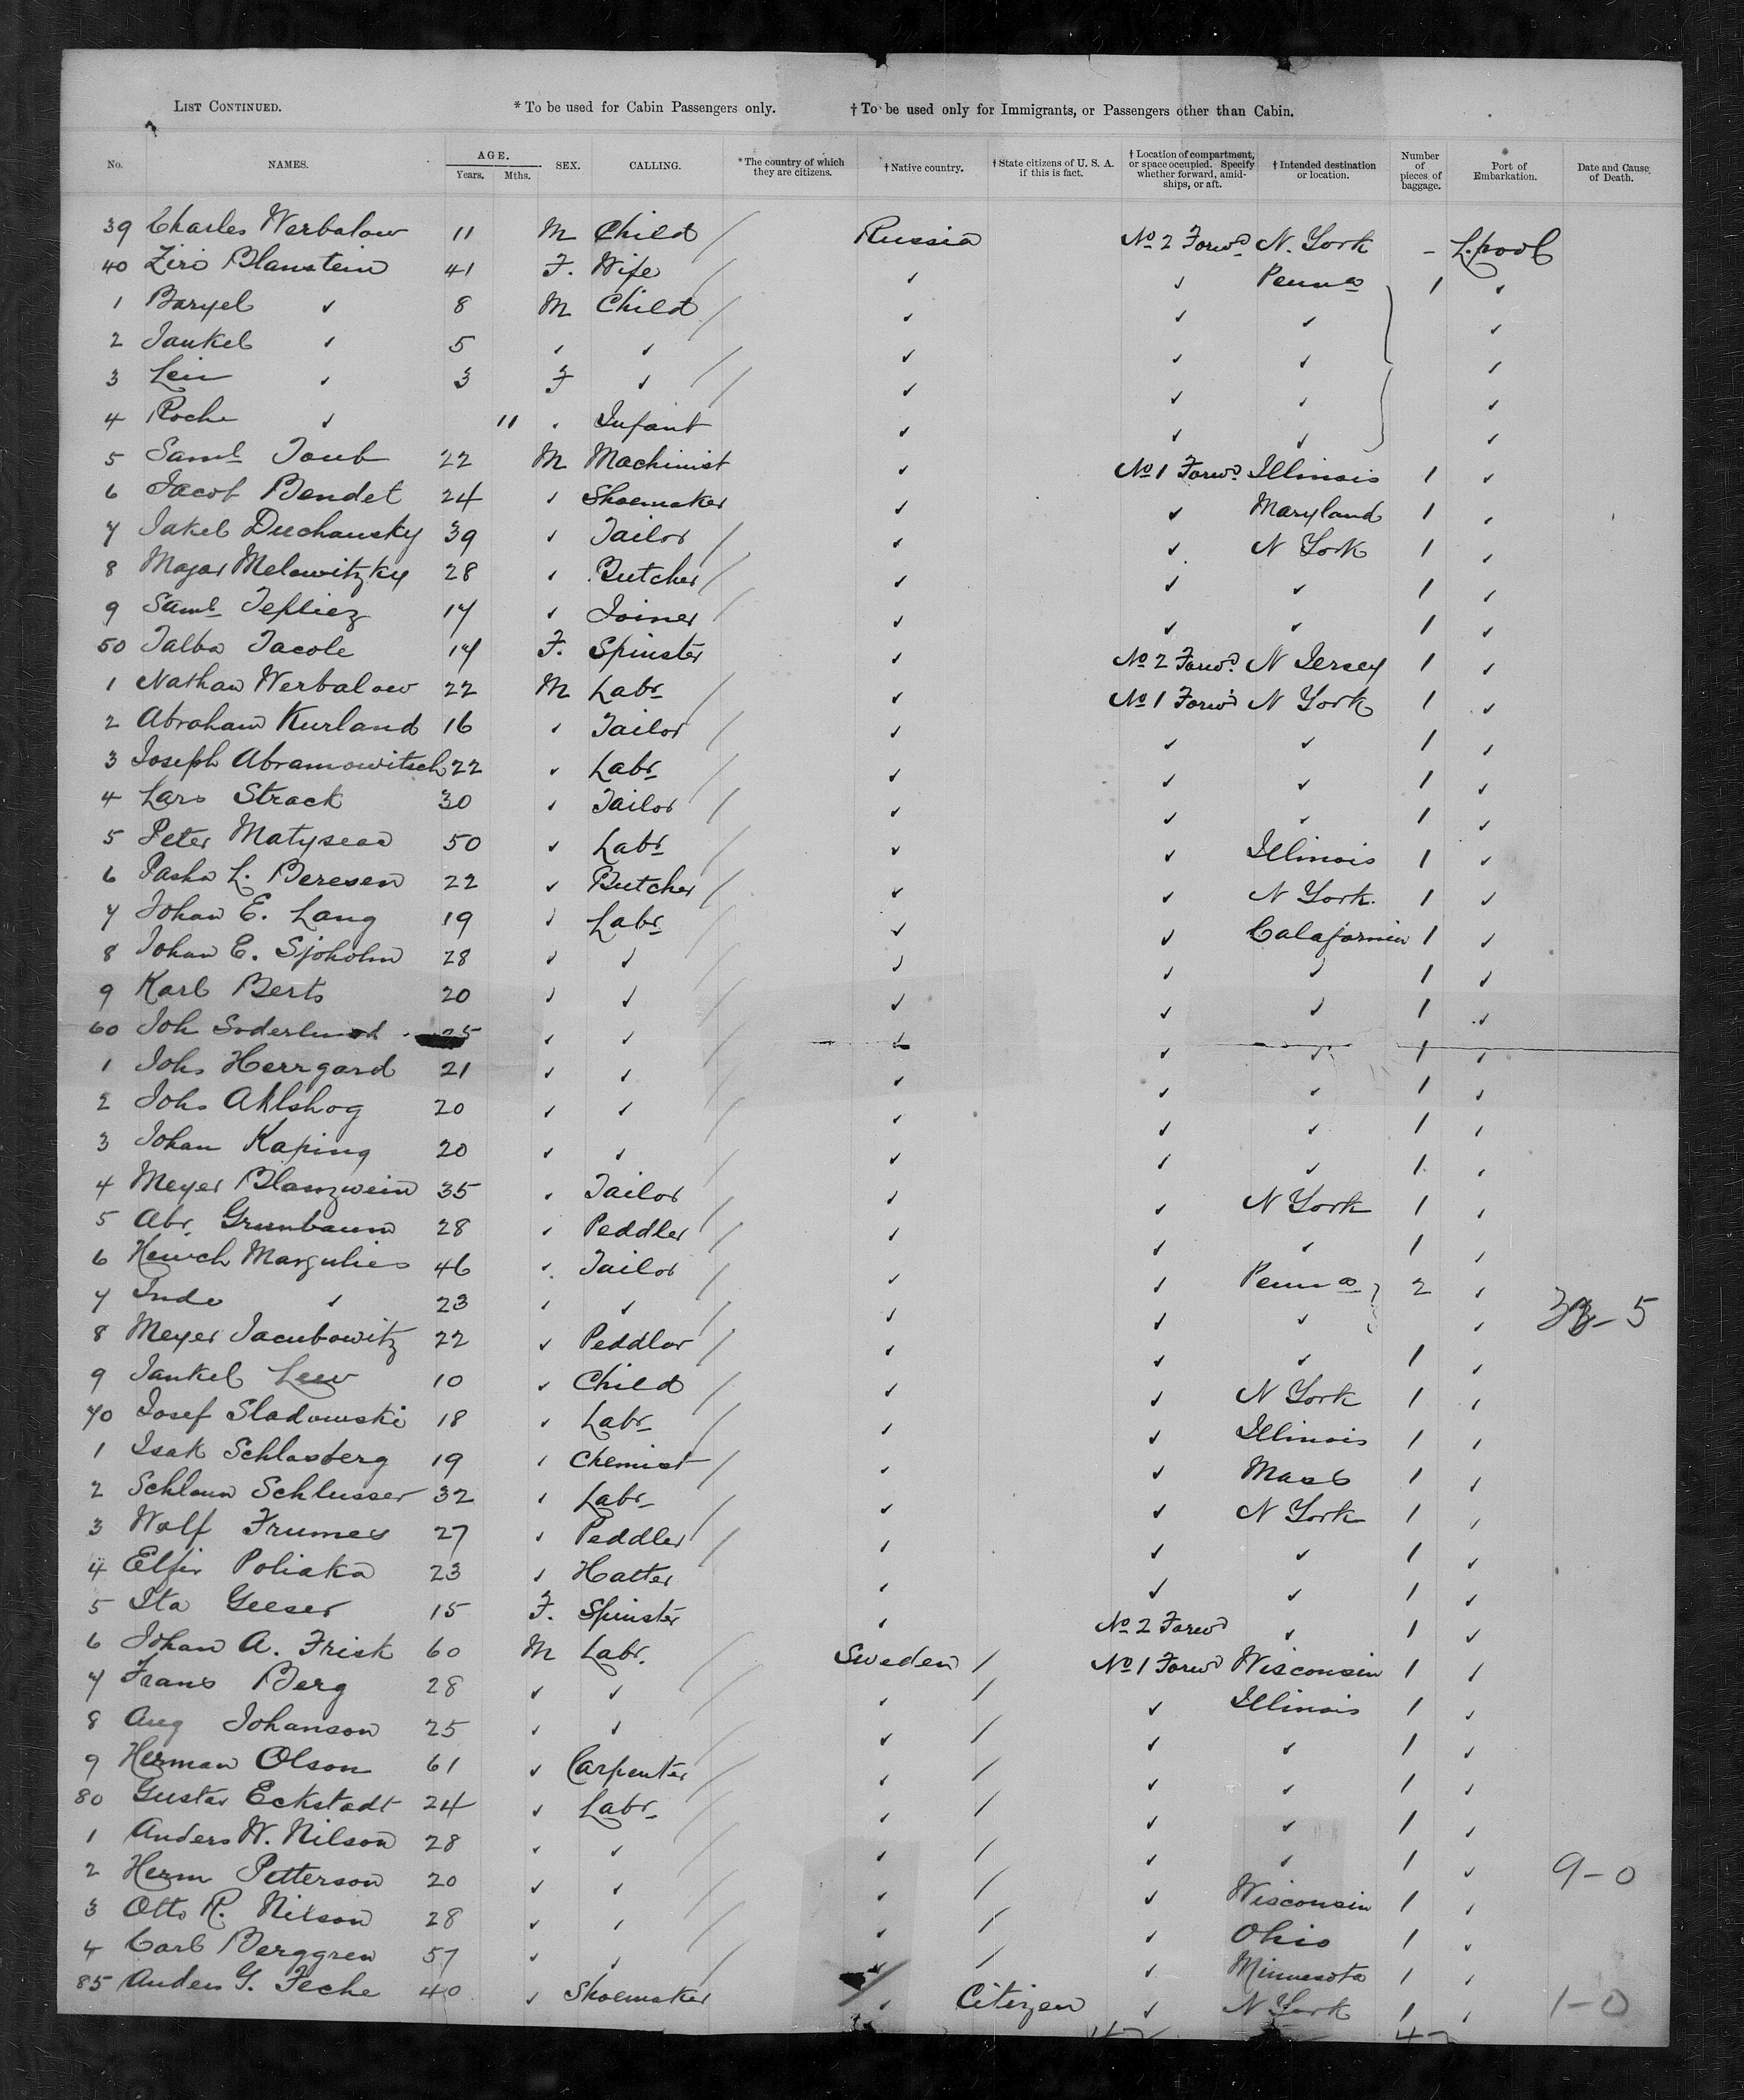 LIST CONTINUED. * To be used for Cabin Passengers only. † To be used only for Immigrants, or Passengers other than Cabin.
No. NAMES. AGE. Years. Mths. SEX. CALLING. * The country of which they are citizens. † Native country. † State citizens of U. S. A. if this is fact. † Location of compartment, or space occupied. Specify whether forward, amidships, or aft. † Intended destination or location. Number of pieces of baggage. Port of Embarkation. Date and Cause of Death.
39 Charles Werbalow 11 M Child / Russia No 2 Forwd N. York - L.pool
40 Ziri Blanstein 41 F. Wife / ✓ ✓ Penna 1 ✓
1 Baryel ✓ 8 M Child / ✓ ✓ ✓ ✓
2 Jankel ✓ 5 ✓ ✓ / ✓ ✓ ✓ ✓
3 Lein ✓ 3 F ✓ / ✓ ✓ ✓ ✓
4 Roche ✓ 11 ✓ Infant ✓ ✓ ✓ ✓
5 Saml Toub 22 M Machinist ✓ No 1 Forwd Illinois 1 ✓
6 Jacob Bendet 24 ✓ Shoemaker ✓ ✓ Maryland 1 ✓
7 Jakel Duchansky 39 ✓ Tailor / ✓ ✓ N York 1 ✓
8 Majar Melowitzky 28 ✓ Butcher / ✓ ✓ ✓ 1 ✓
9 Saml Tepliez 17 ✓ Joiner / ✓ ✓ ✓ 1 ✓
50 Talba Jacole 17 F. Spinster ✓ No 2 Forwd. N Jersey 1 ✓
1 Nathan Werbalow 22 M Labr / ✓ No 1 Forwd N York 1 ✓
2 Abraham Kurland 16 ✓ Tailor / ✓ ✓ ✓ 1 ✓
3 Joseph Abramowitsch 22 ✓ Labr / ✓ ✓ ✓ 1 ✓
4 Lars Strack 30 ✓ Tailor / ✓ ✓ ✓ 1 ✓
5 Peter 50 ✓ Labr / ✓ ✓ Illinois 1 ✓
6 Pasha L. Beresen 22 ✓ Butcher / ✓ ✓ N York. 1 ✓
7 Johan E. Lang 19 ✓ Labr / ✓ ✓ Calafornia 1 ✓
8 Johan E. Sjoholm 28 ✓ ✓ / ✓ ✓ ✓ 1 ✓
9 Karl Berts 20 ✓ ✓ / ✓ ✓ ✓ 1 ✓
60 Joh Soderlund 25 ✓ ✓ / ✓ ✓ ✓ 1 ✓
1 Johs Herrgard 21 ✓ ✓ / ✓ ✓ ✓ 1 ✓
2 Johs Ahlshog 20 ✓ ✓ / ✓ ✓ ✓ 1 ✓
3 Johan Kaping 20 ✓ ✓ / ✓ ✓ ✓ 1 ✓
4 Meyer Blanzwein 35 ✓ Tailor / ✓ ✓ N York 1 ✓
5 Abr. Grunbaum 28 ✓ Peddler / ✓ ✓ ✓ 1 ✓
6 Henich Margulies 46 ✓ Tailor / ✓ ✓ Penna 2 ✓
7 Inde ✓ 23 ✓ ✓ / ✓ ✓ ✓ ✓ 33-5
8 Meyer Jacubowitz 22 ✓ Peddlar / ✓ ✓ ✓ 1 ✓
9 Jankel Leew 10 ✓ Child / ✓ ✓ N York 1 ✓
70 Josef Sladowski 18 ✓ Labr / ✓ ✓ Illinois 1 ✓
1 Isak Schlosberg 19 ✓ Chemist / ✓ ✓ Mass 1 ✓
2 Schloum Schlusser 32 ✓ Labr / ✓ ✓ N York 1 ✓
3 Wolf Frumes 27 ✓ Peddler / ✓ ✓ ✓ 1 ✓
4 Elfir Poliaka 23 ✓ Hatter ✓ ✓ ✓ 1 ✓
5 Ita Geeser 15 F. Spinster ✓ No 2 Forwd ✓ 1 ✓
6 Johan A. Frisk 60 M Labr. / Sweden / No 1 Forwd Wisconsin 1 ✓
7 Frans Berg 28 ✓ ✓ / ✓ / ✓ Illinois 1 ✓
8 Aug Johanson 25 ✓ ✓ / ✓ / ✓ ✓ 1 ✓
9 Herman Olson 61 ✓ Carpenter / ✓ / ✓ ✓ 1 ✓
80 Gustav Eckstadt 24 ✓ Labr / ✓ / ✓ ✓ 1 ✓
1 Anders W. Nilson 28 ✓ ✓ / ✓ / ✓ ✓ 1 ✓
2 Herm Petterson 20 ✓ ✓ / ✓ / ✓ Wisconsin 1 ✓ 9-0
3 Otto R. Nilson 28 ✓ ✓ / ✓ / ✓ Ohio 1 ✓
4 Carl Berggren 57 ✓ ✓ / ✓ / ✓ Minnesota 1 ✓
85 Anders G. Feche 40 ✓ Shoemaker / ✓ Citizen ✓ N York 1 ✓ 1-0